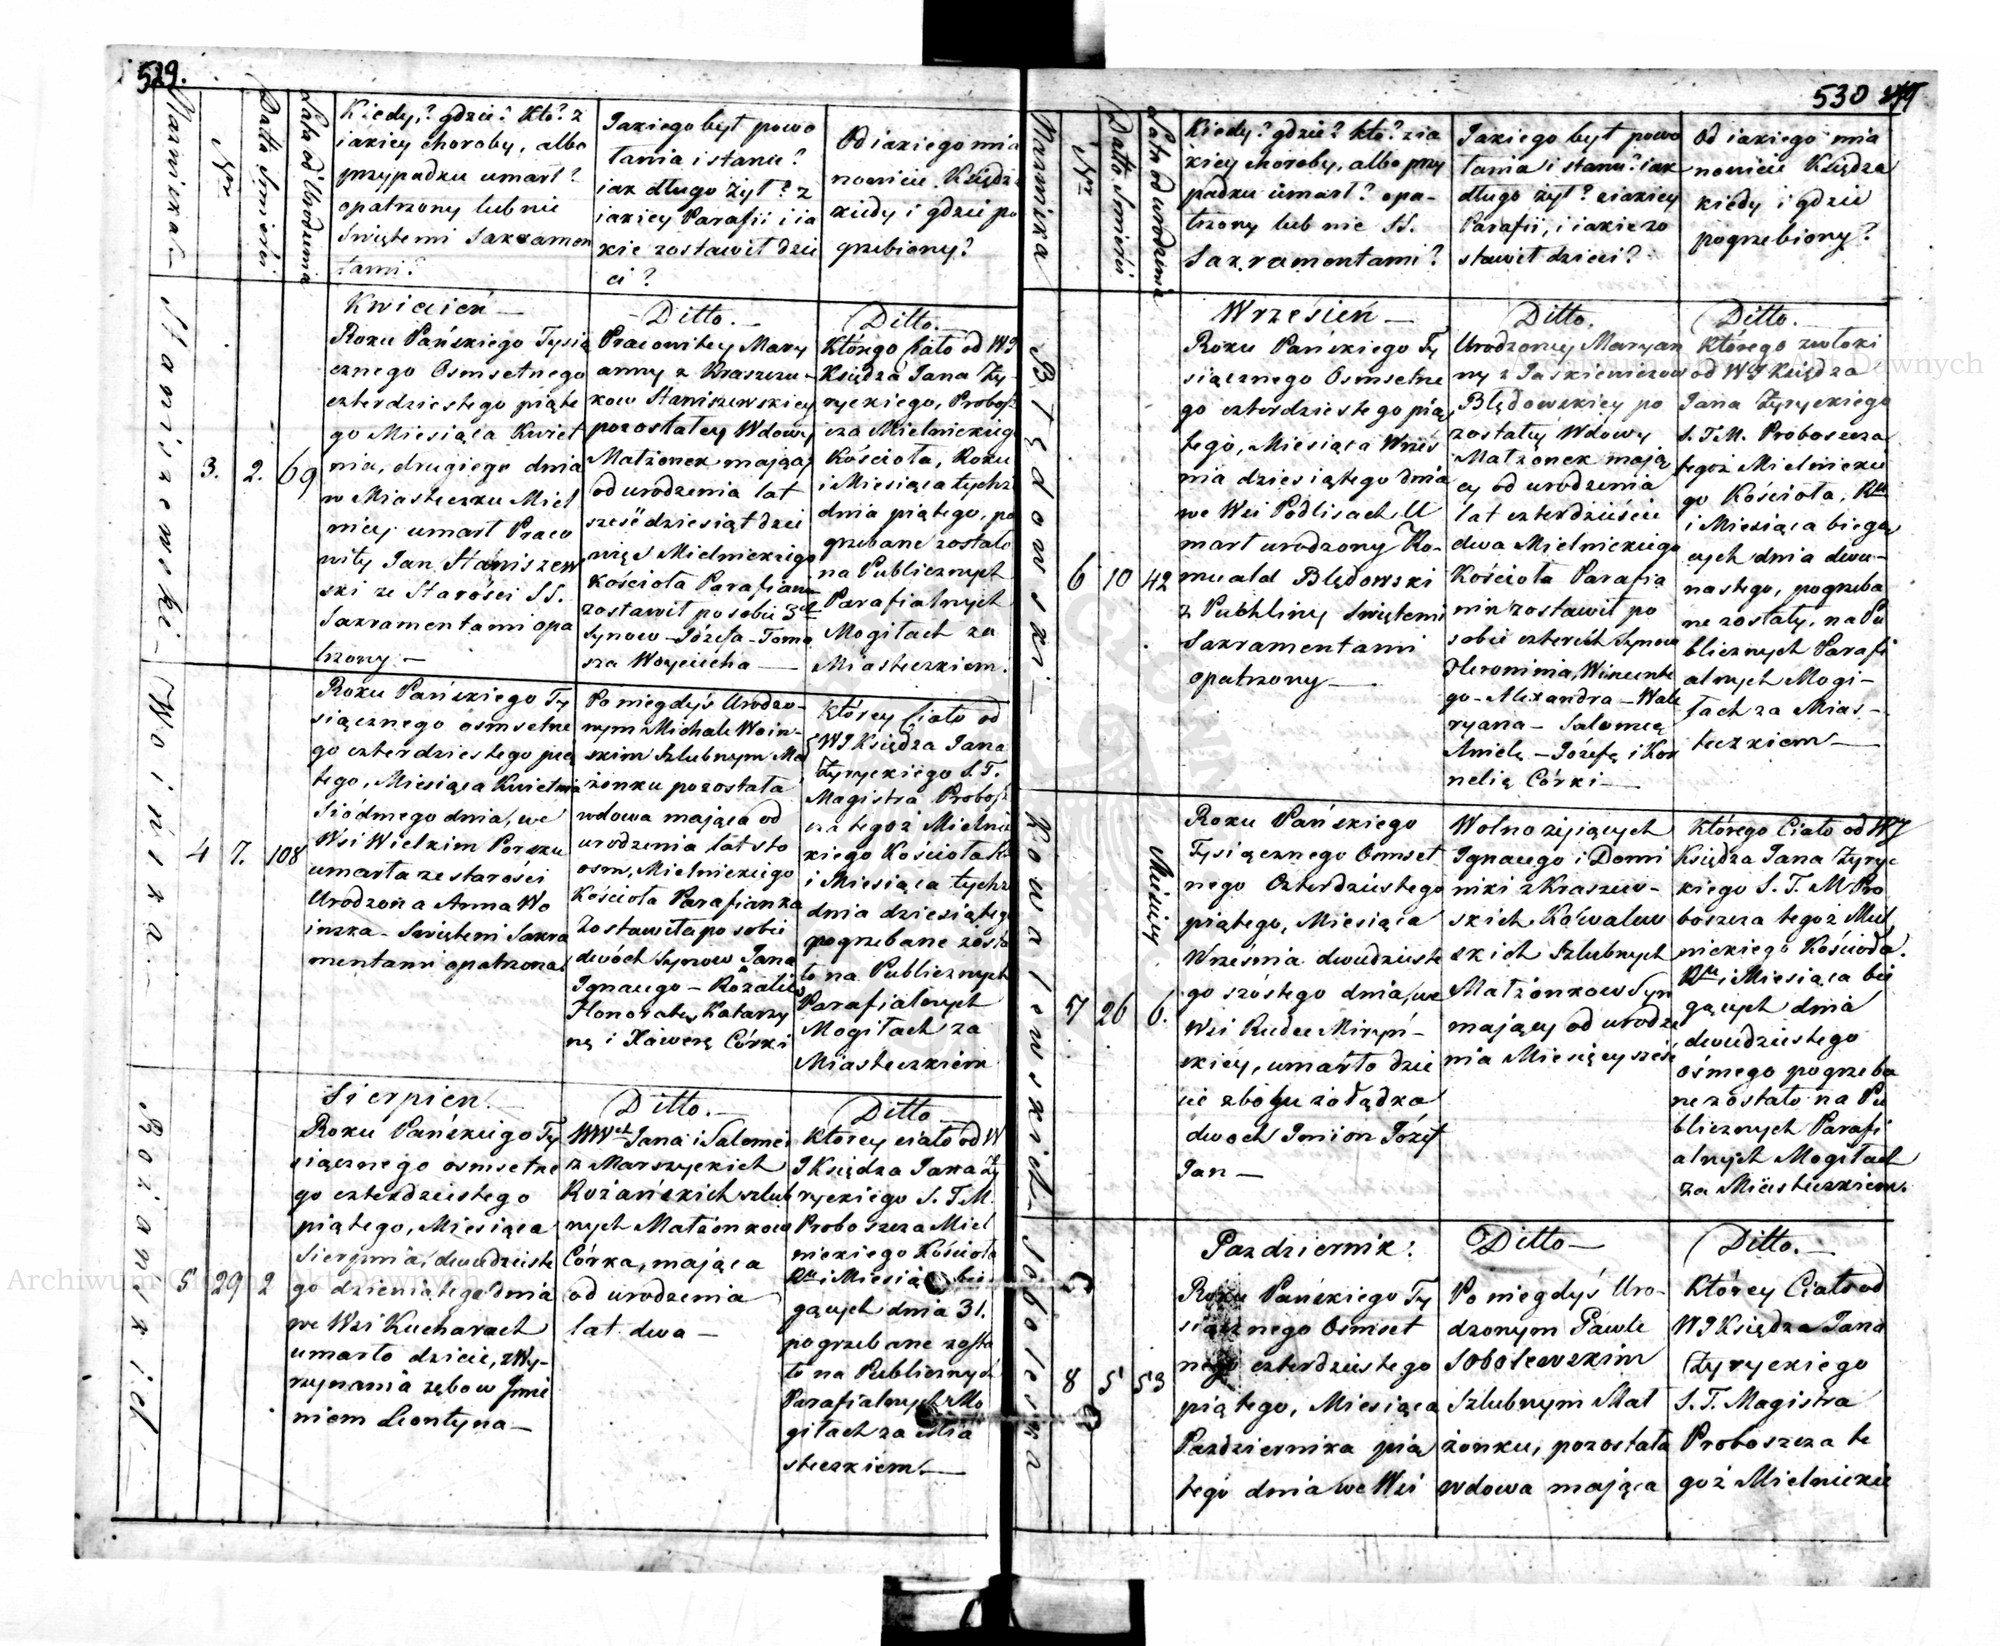 529.
Nazwiska
Nro
Datta Smierci
Lata od Urodzenia
Kiedy? gdzie? Kto? z
iakiey choroby, albo
przypadku umarł?
opatrzony lub nie
Swiętemi Sakramen
tami?
Jakiego był powo
łania i stanu?
iak długo żył? z
iakiey Parafii i ia
kie zostawił dzie
ci?
Od iakiego mia
nowicie Księdza
kiedy i gdzie po
grzebiony?
Staniszewski
3.
2.
69
Kwiecień
Roku Pańskiego Tysią
cznego Osmsetnego
czterdziestego piąte
go Miesiąca Kwiet
nia, drugiego dnia
w Miasteczku Miel
nicy umarł Praco
wity Jan Staniszew
ski ze Starości SS.
Sakramentami opa
trzony
Ditto.
Pracowitey Mary
anny z Kraszczu
kow Staniszewskiey
pozostałey Wdowy
Małżonek maiący
od urodzenia lat
sześćdziesiąt dzie
więć Mielnickiego
kościoła Parafianin
zostawił po sobie 3ch
Synow Józefa Toma
sza Woyciecha
Ditto.
Którego Ciało od WJ
Księdza Jana Ży
ryckiego, Probosz
cza Mielnickiego
Kościoła, Roku
i Miesiąca tychże
dnia piątego, po
grzebane zostało
na Publicznych
Parafialnych
Mogiłach za
Miasteczkiem.
Woińska
4
7.
108
Roku Pańskiego Ty
siącznego osmsetne
go czterdziestego pią
tego, Miesiąca Kwietnia
Siódmego dnia, we
Wsi Wielkim Porsku
umarła ze starości
Urodzona Anna Wo
inska Swiętemi Sakra
mentami opatrzona
Po niegdyś Urodzo
nym Michale Woin
skim Szlubnym Ma
żonku pozostała
wdowa maiąca od
urodzenia lat sto
osm, Mielnickiego
Kościoła Parafianka
Zostawiła po sobie
dwóch Synow Jana
Ignacego Rozalię
Honoratę, Katarzy
nę i Xawerę Córki
Którey Ciało od
WJ Księdza Jana
Żyryckiego S. T.
Magistra Probosz
cza tegoż Mielnic
kiego Kościoła
i Miesiąca tychże
dnia dziesiątego
pogrzebane zosta
ło na Publicznych
Parafialnych
Mogiłach za
Miasteczkiem
Rożańskich
5
29
2
Sierpień.
Roku Pańskiego Ty
siącznego osmsetne
go czterdziestego
piątego, Miesiąca
Sierpnia, dwudzieste
go dziewiątego dnia
we Wsi Kucharach
umarło dziecie, z Wy
rzynania zębow Imie
niem Leontyna
Ditto.
WWch Jana i Salomei
z Marszyckich
Rożańskich szlub
nych Małżonkow
Córka, maiąca
od urodzenia
lat dwa
Ditto
Którey ciało od W
J Księdza Jana Ży
ryckiego S. T. M.
Proboszcza Miel
nickiego Kościoła
Rku i Miesiąca bie
gących dnia 31.
pogrzebane zosta
ło na Publicznych
Parafialnych Mo
giłach za Mia
steczkiem.
530
Nazwiska
Nro
Datta Smierci
Lata od urodzenia
Kiedy? gdzie? kto? z ia
kiey choroby, albo przy
padku umarł? opa
trzony lub nie SS.
Sakramentami?
Jakiego był powo
łania i stanu? iak
długo żył? z iakiey
Parafii, i iakie zo
stawił dzieci?
Od iakiego mia
nowicie Księdza
kiedy i gdzie
pogrzebiony?
Błędowski
6
10
42
Wrzesień
Roku Pańskiego Ty
siącznego Osmsetne
go czterdziestego pią
tego, Miesiąca Wrześ
nia dziesiątego dnia
we Wsi Podlisach U
marł urodzony Ro
muald Błędowski
z Puchliny Swiętemi
Sakramentami
opatrzony
Ditto.
Urodzoney Maryan
ny z Jaskiewiczow
Błędowskiey po
zostałey Wdowy
Małżonek maią
cy od urodzenia
lat czterdzieści
dwa Mielnickiego
Kościoła Parafia
nin zostawił po
sobie czterech Synow
Heronima, Wincente
go Alexandra Wale
ryana Salomeę
Anielę Józefę i Kor
nelię Córki
Ditto.
Którego zwłoki
od WJ Księdza
Jana Żyryckiego
S. T. M. Proboszcza
tegoż Mielnickie
go Kościoła, Rku
i Miesiąca biegą
cych dnia dwu
nastego, pogrzeba
ne zostały, na Pu
blicznych Parafi
alnych Mogi
łach za Mias
teczkiem
Kowalewskich
7
26
6.
Miesięcy
Roku Pańskiego
Tysiącznego Osmset
nego Czterdziestego
piątego, Miesiąca
Września dwudzieste
go szóstego dnia, we
Wsi Rudce Miryń
skiey, umarło dzie
cie z bólu żołądka
dwoch Imion Józef
Jan
Wolno żyiących
Ignacego i Domi
niki z Kraszew
skich Kowalew
skich Szlubnych
Małżonkow Syn
maiący od urodze
nia Miesięcy sześć
Którego Ciało od WJ
Księdza Jana Żyryc
kiego S. T. M Pro
boszcza tegoż Miel
nickiego Kościoła.
Rku i Miesiąca bie
gących dnia
dwudziestego
ósmego pogrzeba
ne zostało na Pu
blicznych Parafi
alnych Mogiłach
za Miasteczkiem.
Sobolewska
8
5
53
Pazdziernik.
Roku Pańskiego Ty
siącznego Osmset
nego czterdziestego
piątego, Miesiąca
Pazdziernika pią
tego dnia we Wsi
Ditto
Po niegdyś Uro
dzonym Pawle
Sobolewskim
Szlubnym Mał
żonku, pozostała
wdowa maiąca
Ditto.
Którey Ciało od
WJ Księdza Jana
Żyryckiego
S. T. Magistra
Proboszcza te
goż Mielnickie
Archiwum Główne Akt Dawnych
Archiwum Główne Akt Dawnych